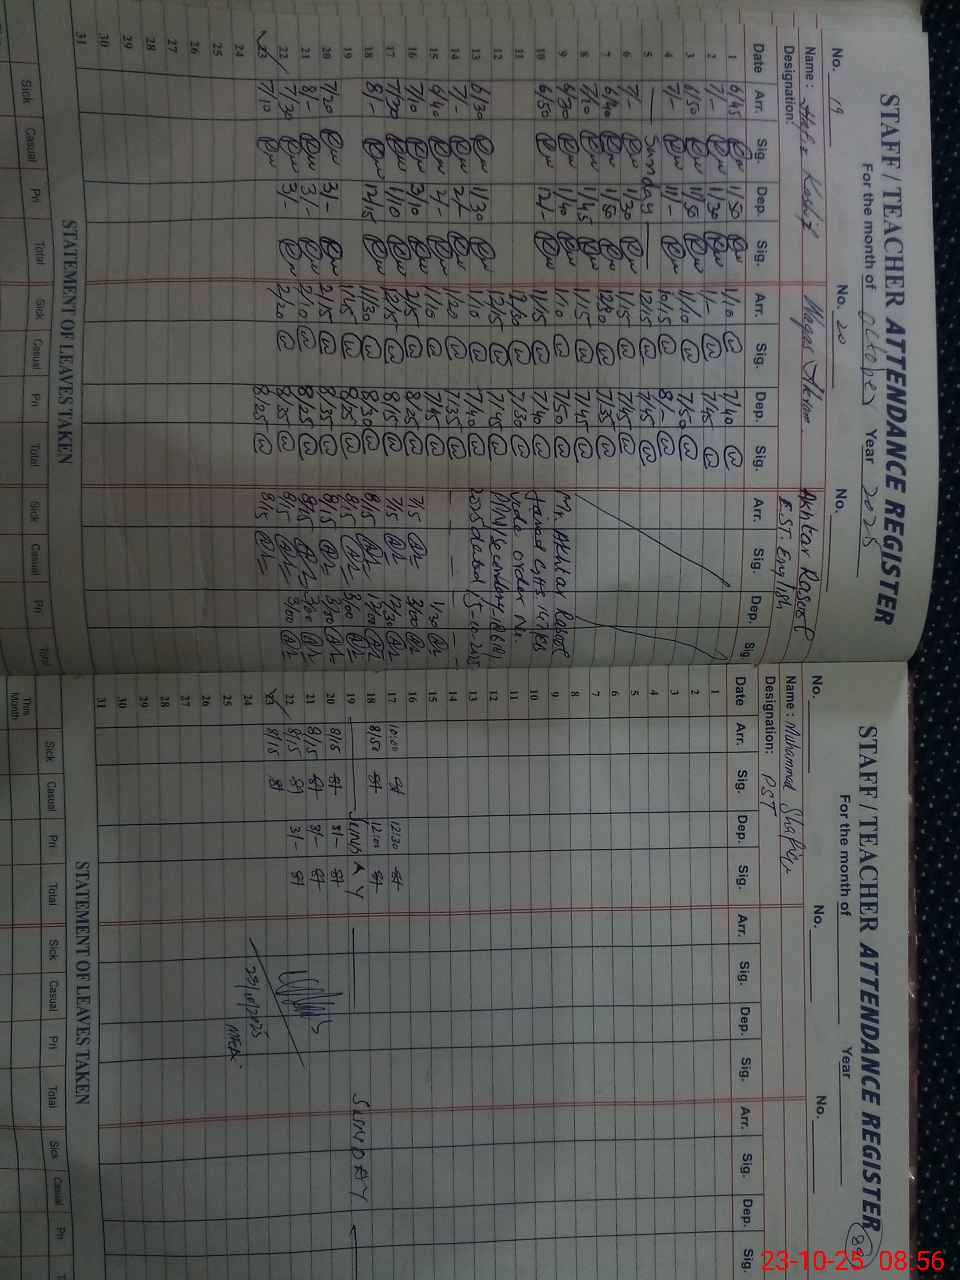 STAFF / TEACHER ATTENDANCE REGISTER
For the month of October Year 2025
No. 19 No. 20 No.
Name: Hafiz Kashif Waqas Akram. Akhtar Rasool
Designation: E.S.T. English
Date Arr. Sig. Dep. Sig. Arr. Sig. Dep. Sig. Arr. Sig. Dep. Sig.
1 6/45 1/50 1/10 7/40
2 7/- 1/30 1/- 7/45
3 6/50 11/50 1/10 7/50
4 7/- 11/- 10/15 8/-
5 — Sunday — 12/15 7/45
6 7/- 1/30 1/15 7/45
7 6/40 1/50 12/30 7/35
8 7/10 1/45 1/15 7/45
9 6/30 1/40 1/10 7/50 Mr. Akhtar Rasool
10 6/50 12/- 11/15 7/40
11 2/30 7/30 vide order No.
12 12/15 7/45
13 6/30 1/30 1/10 7/40
14 7/- 2/- 1/20 7/35
15 6/40 2/- 1/10 7/45 1/30
16 7/10 3/10 2/15 8/25 7/15 3/00
17 7/30 1/10 12/15 8/15 7/15 12/30
18 8/- 12/15 11/30 8/30 8/15 12/00
19 1/45 8/25 8/15 3/00
20 7/20 3/- 2/15 8/35 8/15 3/00
21 8/- 3/- 2/10 8/25 8/15 3/00
22 7/30 3/- 2/20 8/35 8/15 3/00
23 7/10 8/25 8/15
24
25
26
27
28
29
30
31
STATEMENT OF LEAVES TAKEN
Sick Casual Pri Total Sick Casual Pri Total Sick Casual Pri Total
STAFF / TEACHER ATTENDANCE REGISTER 89
For the month of Year
No. No. No.
Name: Muhammad Shabir
Designation: PST
Date Arr. Sig. Dep. Sig. Arr. Sig. Dep. Sig. Arr. Sig. Dep. Sig.
1
2
3
4
5
6
7
8
9
10
11
12
13
14
15
16
17 10:00 12:30
18 8/50 12:00
19 SUNDAY SUNDAY
20 8/15 3/-
21 8/15 3/-
22 8/15 3/-
23 8/15
24 23/10/2025
25
26
27
28
29
30
31
STATEMENT OF LEAVES TAKEN
This Month Sick Casual Pri Total Sick Casual Pri Total Sick Casual Pri
23-10-25 08:56